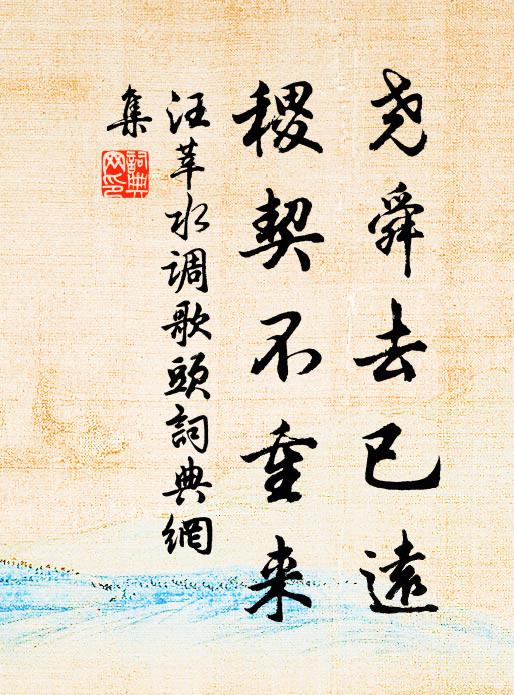 尧舜去已遠
稷契不重来
汪莘水调歌頭詞典網
集
詞典
网印